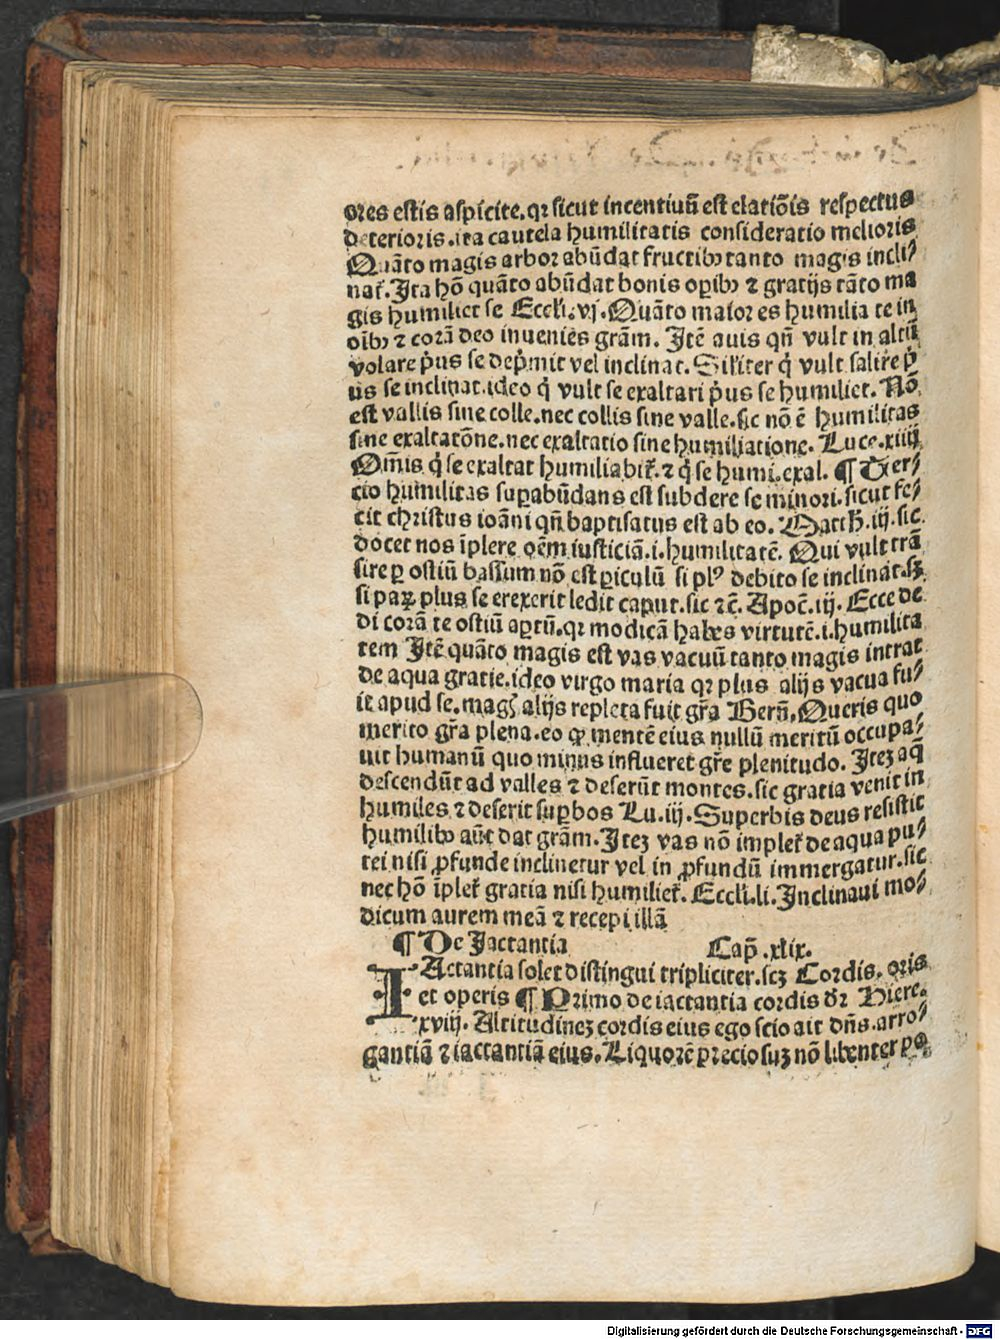 ores estis aspicite.qꝛ sicut incentiuū est elatiōis respectus
deterioris.ita cautela humilitatis consideratio melioris
Quāto magis arbor abūdat fructibꝫ tanto magis incli⸗
nat̄.Ita hō quāto abūdat bonis oꝑibꝫ ⁊ gratijs tāto ma
gis humiliet se Eccli.vj.Quāto maior es humilia te in
oībꝫ ⁊ corā deo inuenies grām. Itē auis qn̄ vult in altū
volare pͥus se dep̄mit vel inclinat. Sil'iter qͥ vult salire pͥ
us se inclinat.ideo qͥ vult se exaltari pͥus se humiliet. Nō
est vallis sine colle.nec collis sine valle.sic nō ē humilitas
sine exaltatōne.nec exaltatio sine humiliatione. Luce.xiiij
Om̄is qͥ se exaltat humiliabit̄.⁊ qͥ se humi.exal. ¶ Ter⸗
cio humilitas suꝑabūdans est subdere se minori.sicut fe⸗
cit christus ioāni qn̄ baptisatus est ab eo. Matth̄.iij.sic
docet nos īplere oēm iusticiā.i.humilitatē. Qui vult trā
sire ꝑ ostiū bassum nō est ꝑiculū si plꝰ debito se inclinat.sꝫ
si paꝝ plus se erexerit ledit caput.sic ⁊c̄. Apoc̄.iij. Ecce de
di corā te ostiū aꝑtū.qꝛ modicā habes virtutē.i.humilita
tem Itē quāto magis est vas vacuū tanto magis intrat
de aqua gratie.ideo virgo maria qꝛ plus alijs vacua fu⸗
it apud se.magꝭ alijs repleta fuit gr̄a Bern̄.Queris quo
merito gr̄a plena.eo ꝙ mentē eius nullū meritū occupa⸗
uit humanū quo minus influeret gr̄e plenitudo. Iteꝫ aq̄
descendūt ad valles ⁊ deserūt montes.sic gratia venit in
humiles ⁊ deserit suꝑbos Lu.iij.Superbis deus resistit
humilibꝫ aūt dat grām.Iteꝫ vas nō implet̄ de aqua pu⸗
tei nisi ꝓfunde inclinetur vel in ꝓfundū immergatur.sic
nec hō īplet̄ gratia nisi humiliet̄. Eccli.li.Inclinaui mo⸗
dicum aurem meā ⁊ recepi illā
¶ De Jactantia Cap̄.xlix.
IActantia solet distingui tripliciter.scꝫ Cordis.oris
et operis ¶ Primo de iactantia cordis dr̄ Hiere.
xviij. Altitudineꝫ cordis eius ego scio ait dn̄s.arro⸗
gantiā ⁊ iactantiā eius.Liquorē p̄ciosuꝫ nō libenter po
Digitalisierung gefördert durch die Deutsche Forschungsgemeinschaft - DFG